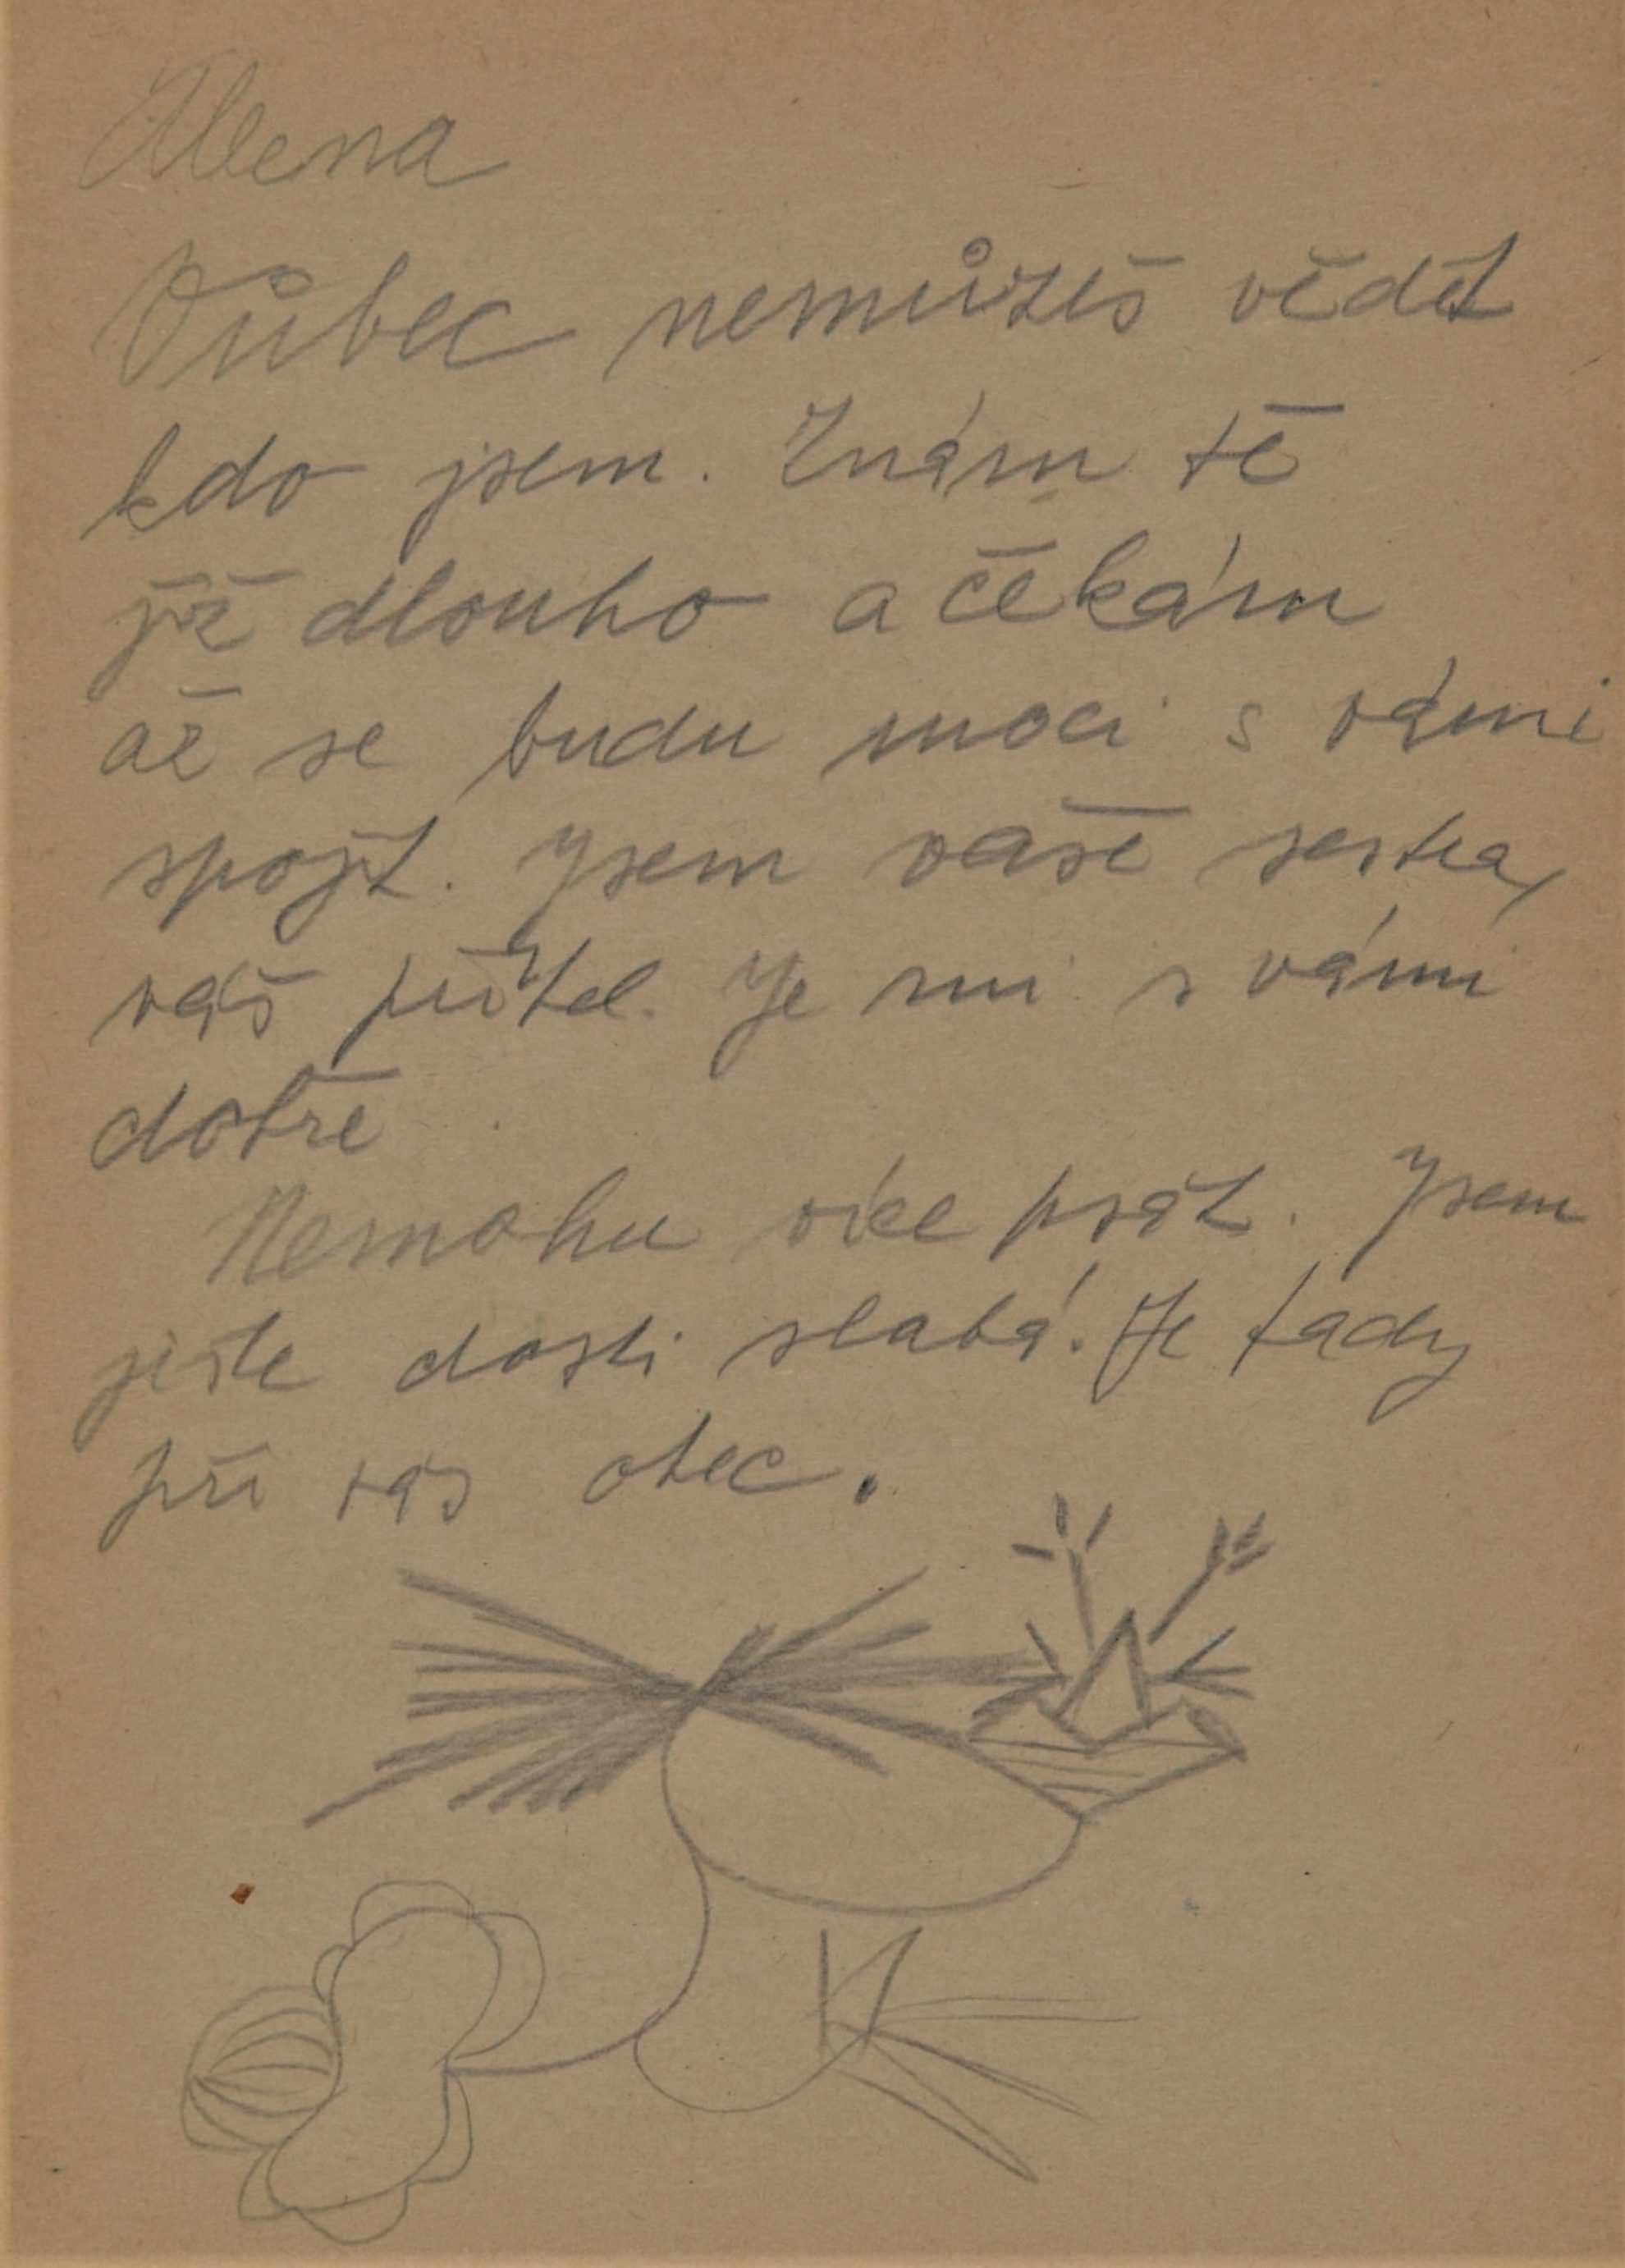 Alena
Vůbec nemůžeš vědět
kdo jsem. Znám tě
již dlouho a čekám
až se budu moci s vámi
spojit. Jsem vaše sestra,
váš přítel. Je mi s vámi
dobře
Nemohu více psát. Jsem
ješte dosti slabá. Je tady
při vás otec.